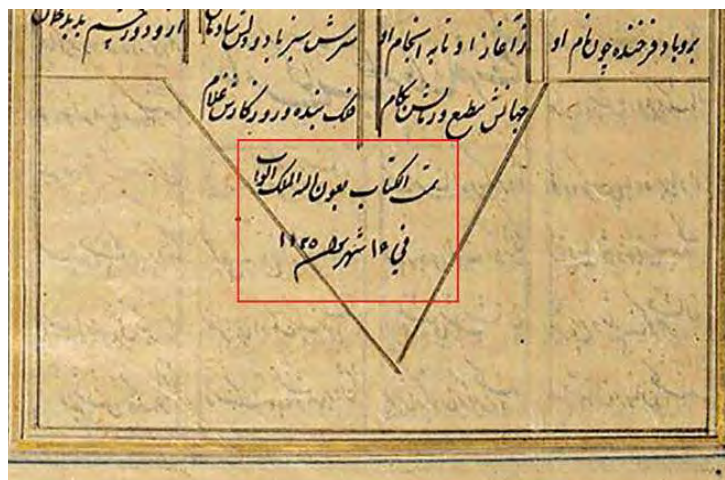 برو باد فرخنده چون نام او ز آغاز او تا به انجام او سرش سبز باد و دلش شادمان ازو دور چشم بد
جهانش مطیع و زمانش بکام فلک بنده و روزگارش غلام
تمت الکتاب بعون اله الملک الوهاب
في ۱۶ شهر ۱۱۲۵